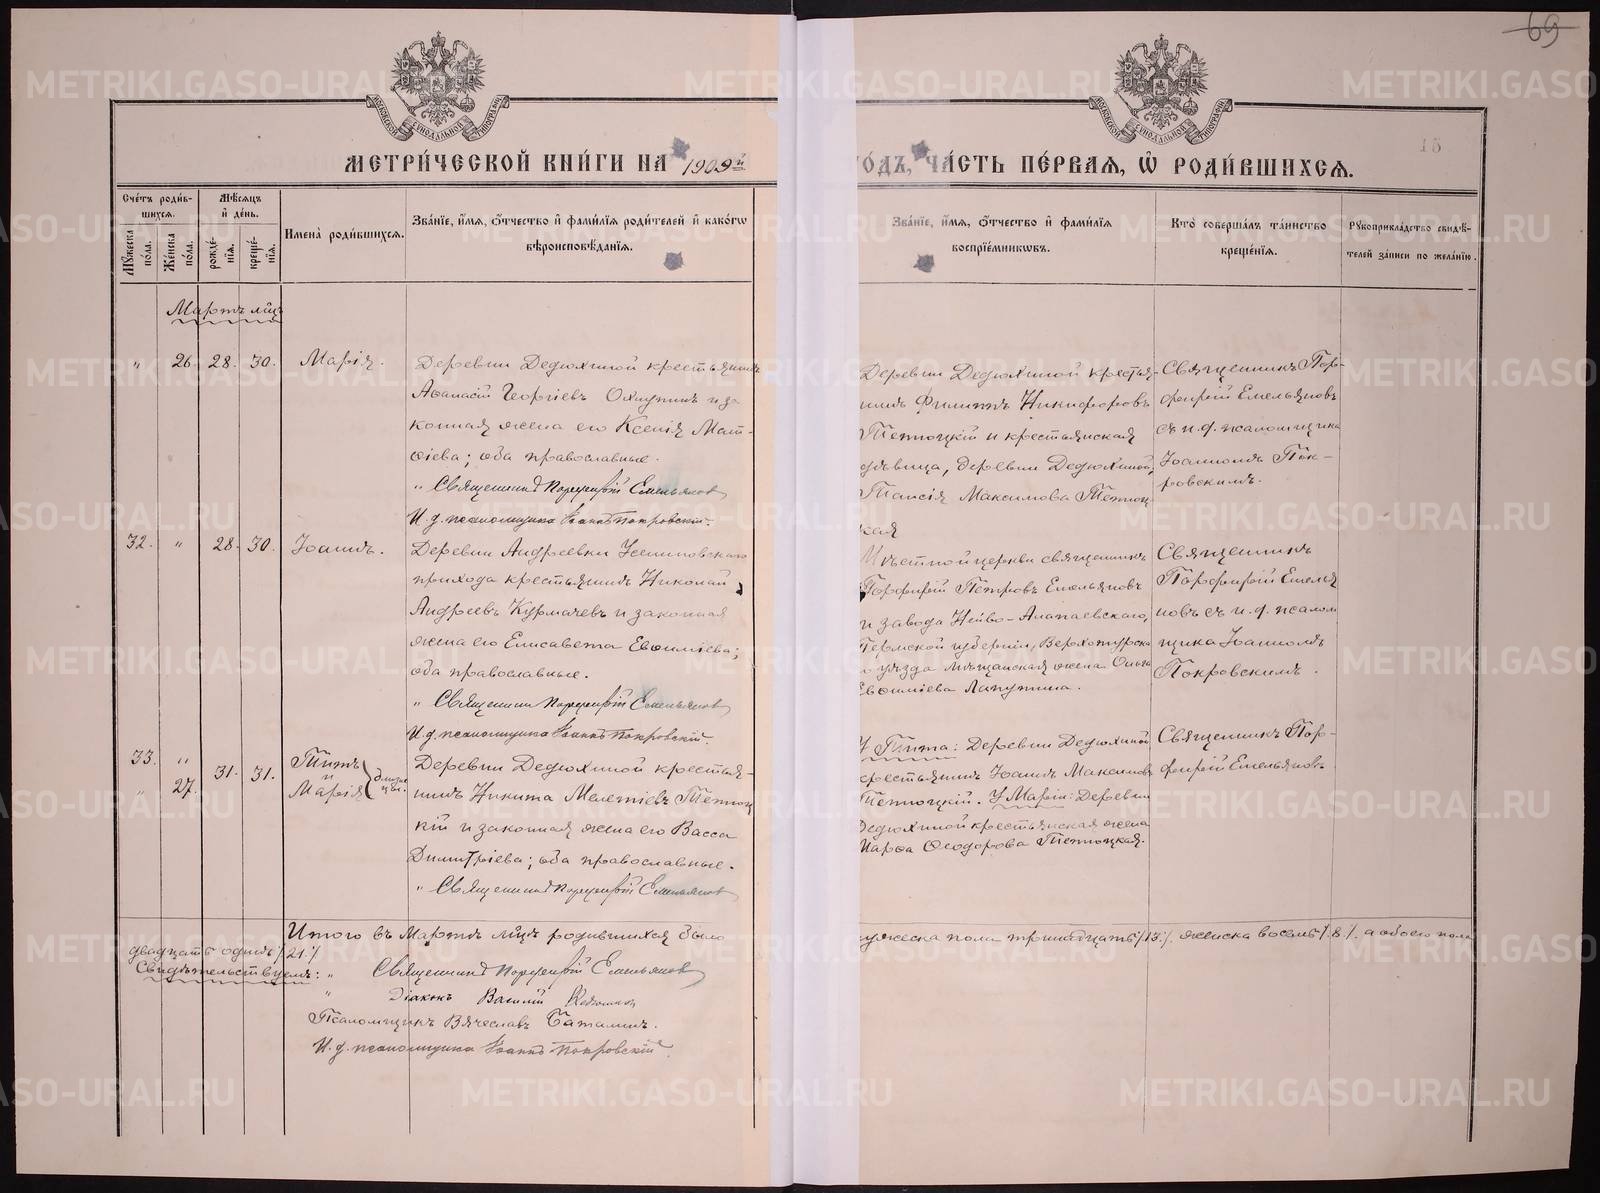 69
15
МЕТРИ́ЧЕСКОЙ КНИ́ГИ НА 1909й
О́ДЪ, ЧА́СТЬ ПЕ́РВАЯ, Ѡ҆ РОДИ́ВШИХСЯ.
Сче́тъ роди́в-
шихся.
Мѣ́сяцъ
и҆ де́нь.
Мꙋ́жеска по́ла.
Же́нска по́ла.
рожде́-
нїя.
креще́-
нїя.
И҆мена̀ роди́вшихся.
Зва́нїе, и҆́мя, ѻ҆́тчество и҆ фами́лїя роди́телей и҆ како́гѡ
вѣроисповѣ́данїя.
Зва́нїе, и҆́мя, ѻ҆́тчество и҆ фами́лїя
воспрїе́мниковъ.
Кто̀ соверша́лъ та́инство
креще́нїя.
Рꙋкоприкла́дство свидѣ́-
телей за́писи по жела́нїю.
Мартъ мѣц
" 26. 28. 30. Марія.
Деревни Дедюхиной крестьянинъ
Аѳанасій Георгіевъ и за
конная жена его Ксенія Мат-
ѳіева; оба православные.
" Священникъ Порфирій Емельяновъ
И. д. псаломщика Іоаннъ Покровскій.
Деревни Дедюхиной крестья-
нинъ Филиппъ Никифоровъ
Тетюцкій и крестьянская
дѣвица, деревни Дедюхиной,
Таисія Максимова Тетюц
кая
Священникъ Пор-
фирій Емельяновъ
съ и. д. псаломщика
Іоанномъ Пок-
ровскимъ.
32. " 28. 30. Іоаннъ.
Деревни Андреевки
прихода крестьянинъ Николай
Андреевъ Курмачевъ и законная
жена его Елисавета Евѳиміева;
оба православные.
" Священникъ Порфирій Емельяновъ
И. д. псаломщика Іоаннъ Покровскій.
Мѣстной церкви священникъ
Порфирій Петровъ Емельяновъ
и завода Нейво-Алапаевскаго,
Пермской губерніи, Верхотурска
о уѣзда мѣщанская жена Ольга
Евѳиміева Лапутина.
Священникъ
Порфирій Емелья
новъ съ и. д. псалом
щика Іоанномъ
Покровскимъ.
33. " 31. 31. Титъ
и
" 27. Марія близне
цы.
Деревни Дедюхиной крестья-
нинъ Никита Мелетіевъ Тетюц
кій и законная жена его Васса
Димитріева; оба православные.
" Священникъ Порфирій Емельяновъ
У Тита: Деревни Дедюхиной
крестьянинъ Іоаннъ Максимовъ
Тетюцкій. У Маріи: Деревни
Дедюхиной крестьянская жена
Марѳа Ѳеодорова Тетюцкая.
Священникъ Пор-
фирій Емельяновъ
Итого въ Мартѣ мѣцѣ родившихся было
мужеска пола тринадцать /13/, женска восемь /8/, а обоего пола
двадцать одинъ /21/
Свидѣтельствуемъ: " Священникъ Порфирій Емельяновъ
" Діаконъ Василій
Псаломщикъ Вячеславъ Баталинъ.
И. д. псаломщика Іоаннъ Покровскій.
METRIKI.GASO-URAL.RU